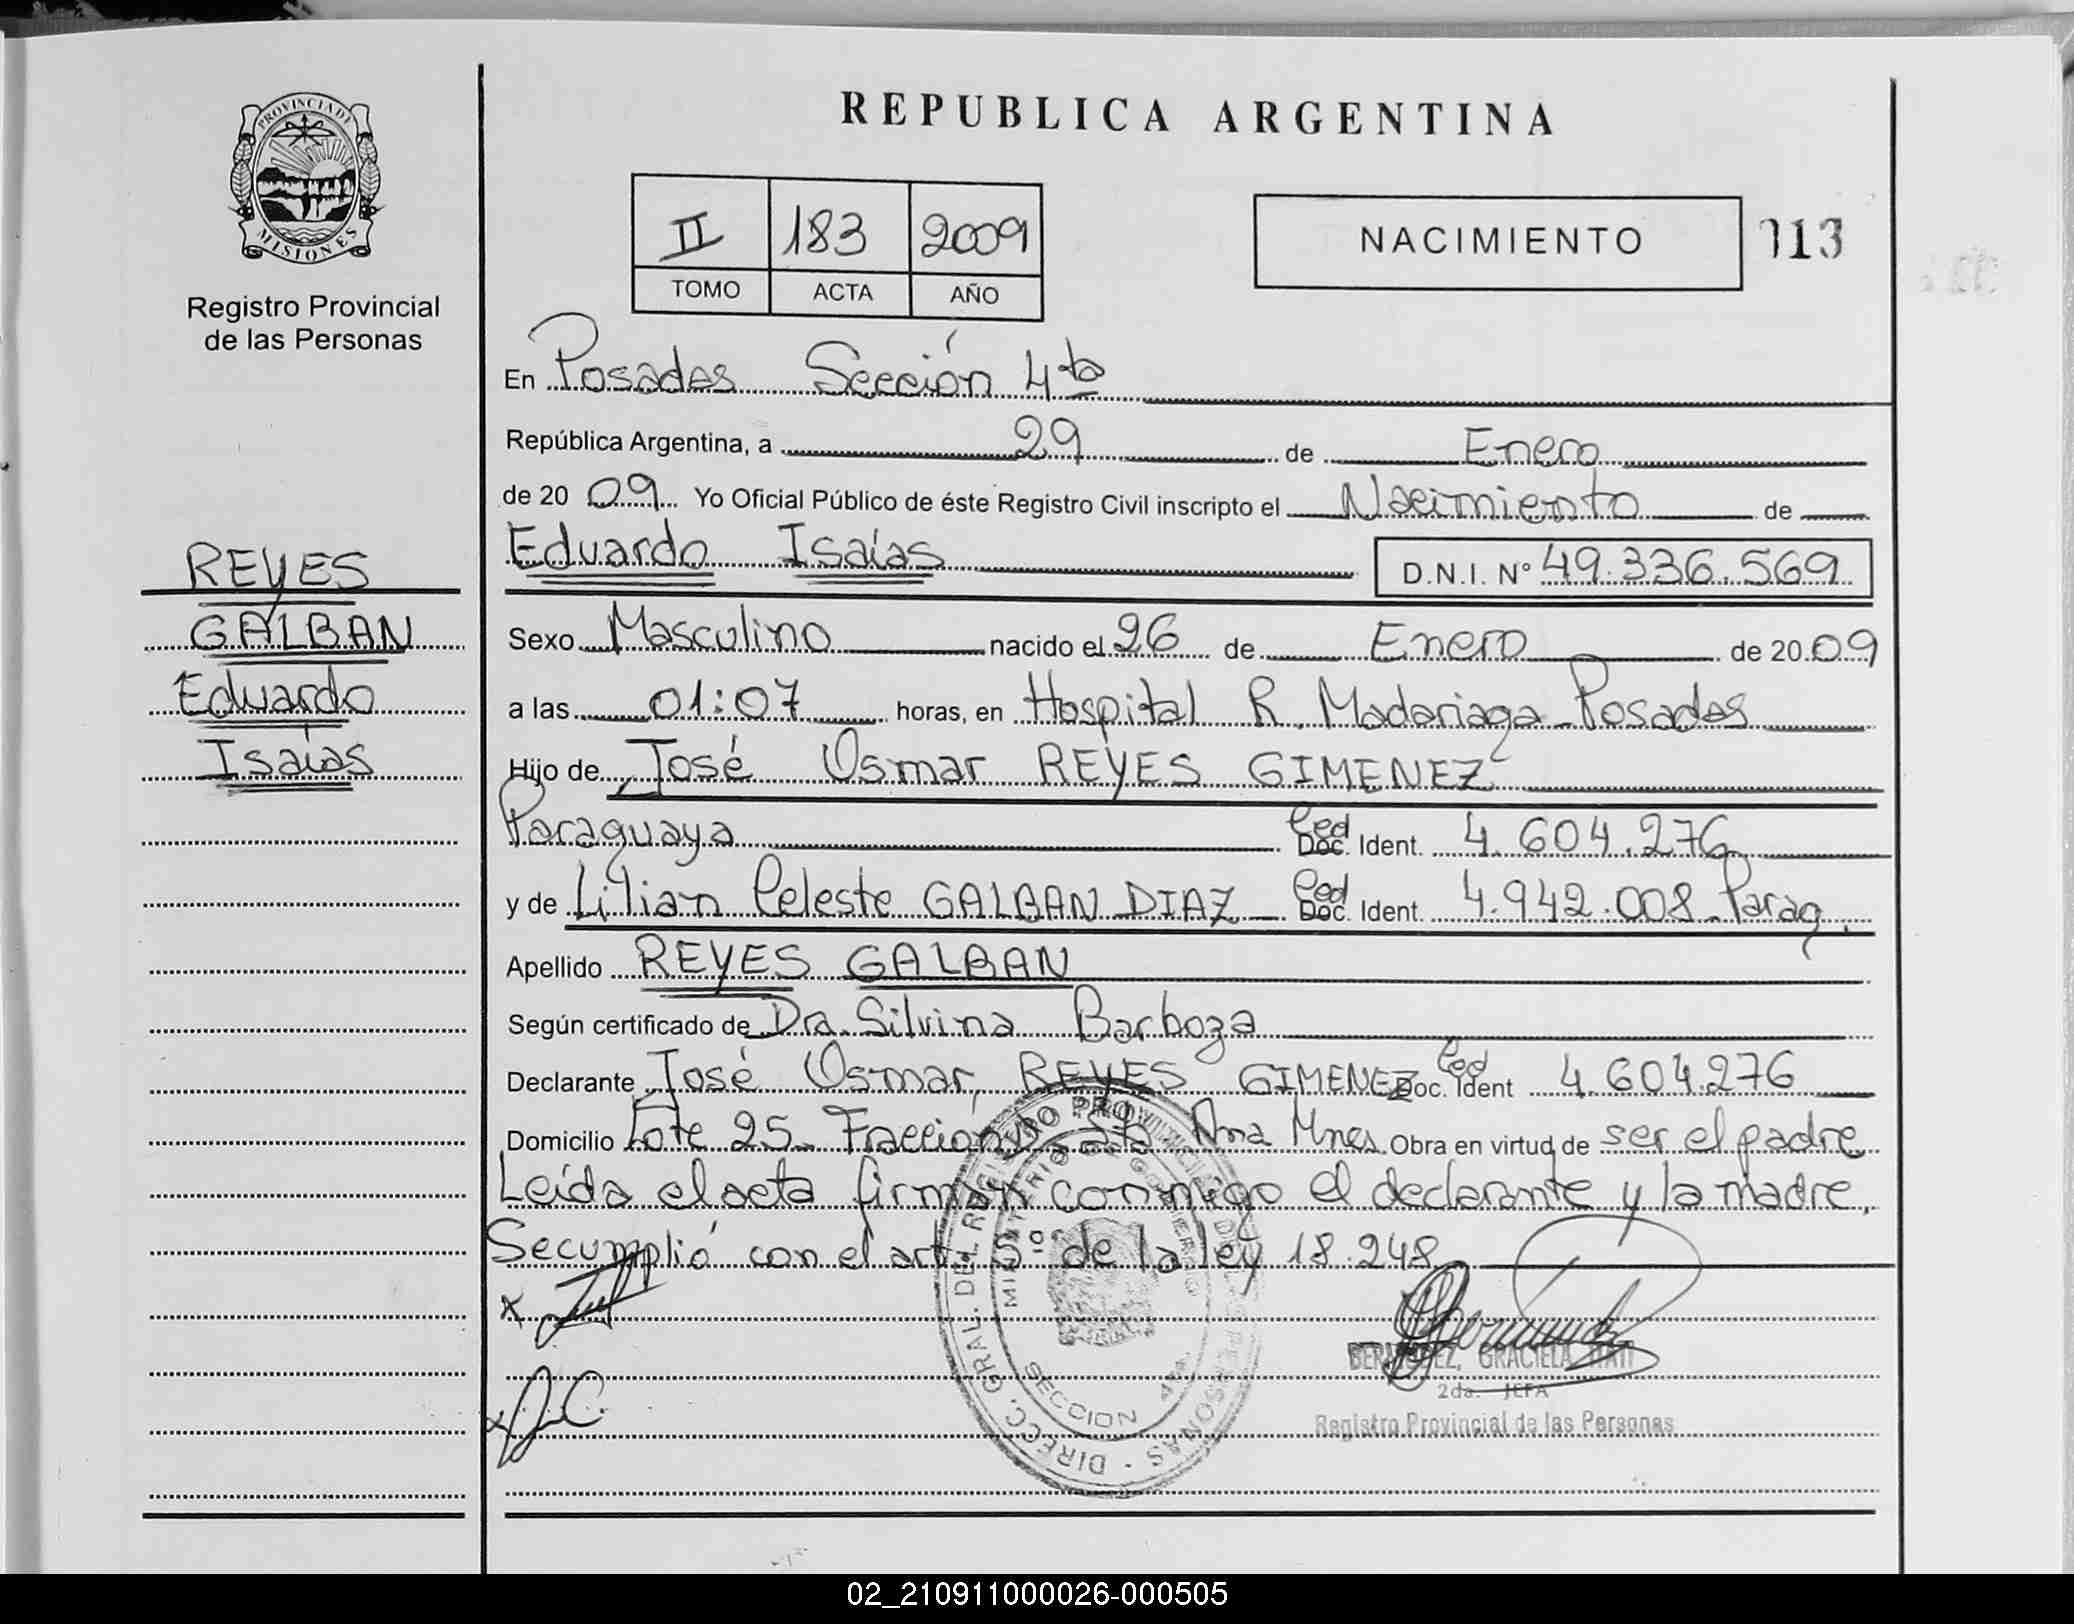 REPUBLICA ARGENTINA
PROVINCIA DE
MISIONES
Registro Provincial
de las Personas
II 183 2009
TOMO ACTA AÑO
NACIMIENTO 113
En Posadas Sección 4ta
República Argentina, a 29 de Enero
de 20 09 Yo Oficial Público de éste Registro Civil inscripto el Nacimiento de
Eduardo Isaías D.N.I. Nº 49.336.569
REYES
GALBAN
Eduardo
Isaías
Sexo Masculino nacido el 26 de Enero de 20 09
a las 01:07 horas, en Hospital R. Madariaga Posadas
Hijo de José Osmar REYES GIMENEZ
Paraguaya Ced Doc. Ident. 4.604.276
y de Lilian Celeste GALBAN DIAZ Ced Doc. Ident. 4.942.008 Parag.
Apellido REYES GALBAN
Según certificado de Dra. Silvina Barboza
Declarante José Osmar REYES GIMENEZ Ced Doc. Ident 4.604.276
Domicilio Lote 25 Fracción Sta Ana Mnes. Obra en virtud de ser el padre
Leída el acta firman conmigo el declarante y la madre,
Se cumplió con el art 5º de la ley 18.248
DIRECC. GRAL. DEL REGISTRO PROVINCIAL DE LAS PERSONAS
MINISTERIO DE GOBIERNO
SECCION 4ta.
GRACIELA ITATI
2da. JEFA
Registro Provincial de las Personas
02_210911000026-000505